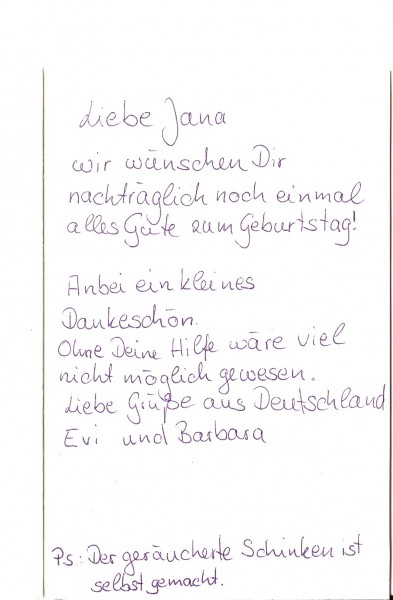 Liebe Jana
wir wünschen Dir
nachträglich noch einmal
alles Gute zum Geburtstag!
Anbei ein kleines
Dankeschön.
Ohne Deine Hilfe wäre viel
nicht möglich gewesen.
Liebe Grüße aus Deutschland
Evi und Barbara
P.s.: Der geräucherte Schinken ist
selbst gemacht.